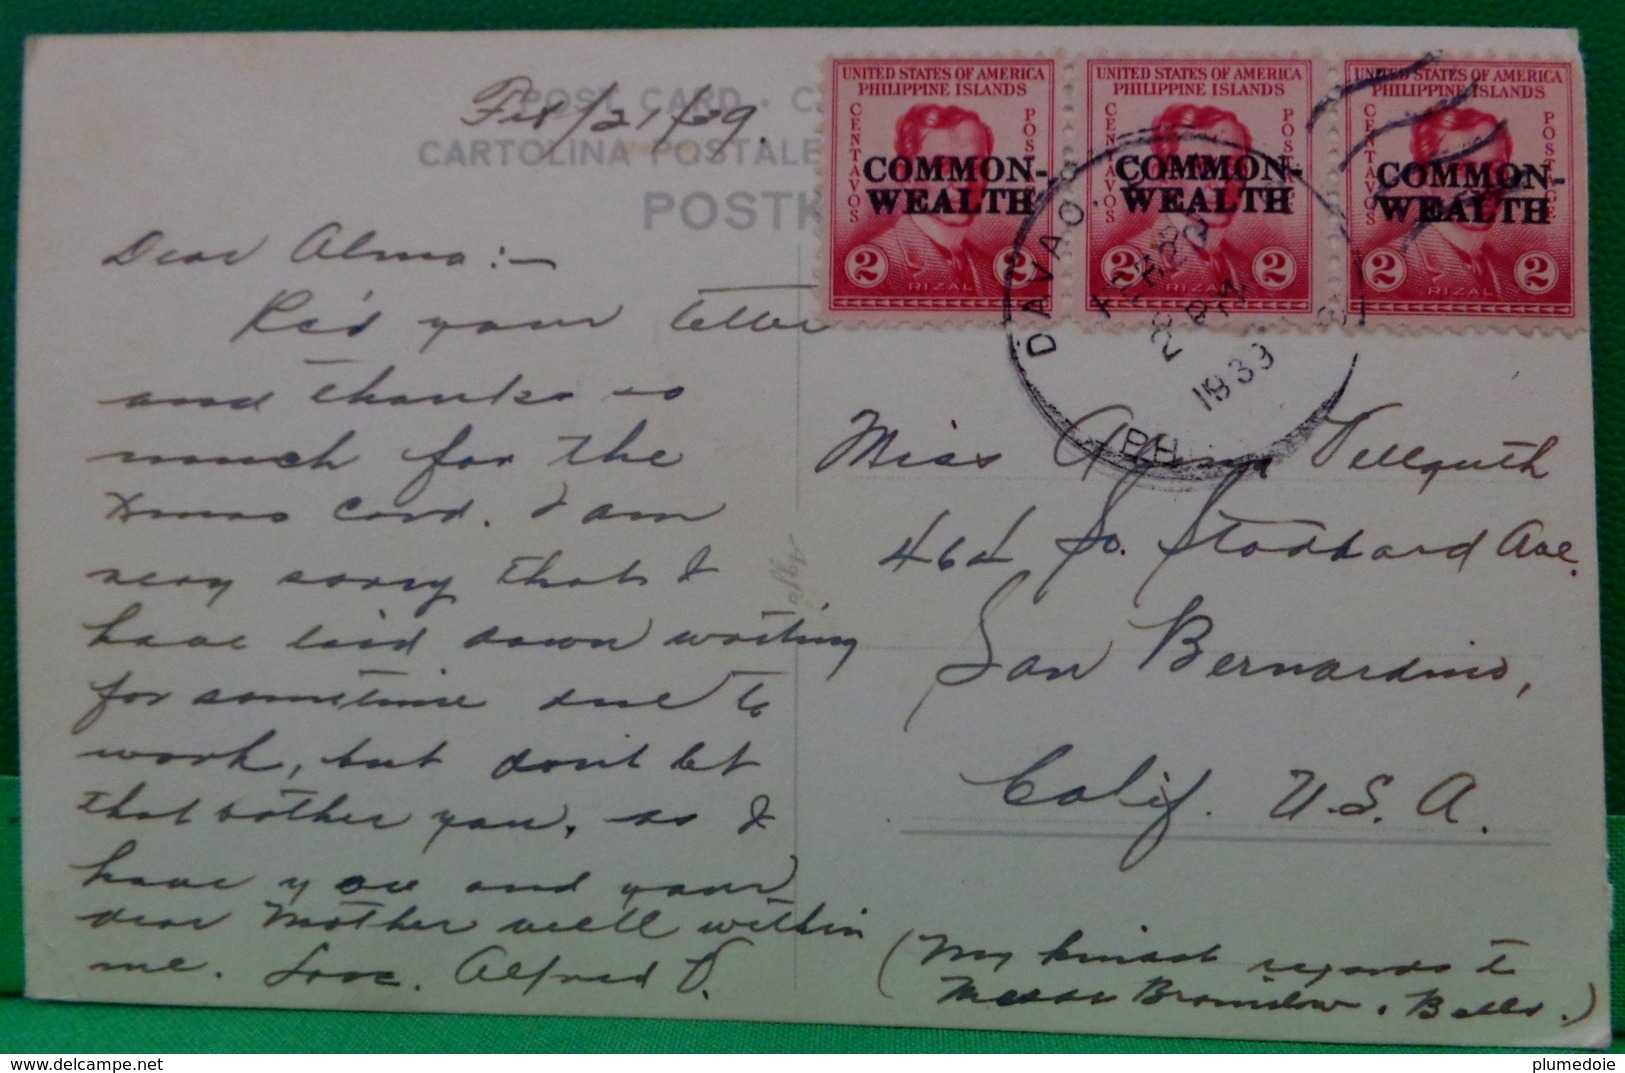 POST CARD · C
CARTOLINA POSTALE
POSTK
Feb/21/39.
UNITED STATES OF AMERICA
PHILIPPINE ISLANDS
CENTAVOS
POSTAGE
COMMON-
WEALTH
2 2
RIZAL
UNITED STATES OF AMERICA
PHILIPPINE ISLANDS
CENTAVOS
POSTAGE
COMMON-
WEALTH
2 2
RIZAL
UNITED STATES OF AMERICA
PHILIPPINE ISLANDS
CENTAVOS
POSTAGE
COMMON-
WEALTH
2 2
RIZAL
DAVAO,
PM
1939
P.H.
Dear Alma:—
Rec'd your letter
and thanks so
much for the
Xmas card. I am
very sorry that I
have laid down writing
for sometime due to
work, but don't let
that bother you, as I
have you and your
dear Mother well within
me. Love. Alfred V.
Miss Alma
464 So. Stoddard Ave.
San Bernardino,
Calif. U.S.A.
(My kindest regards to
Bells.)
plumedoie